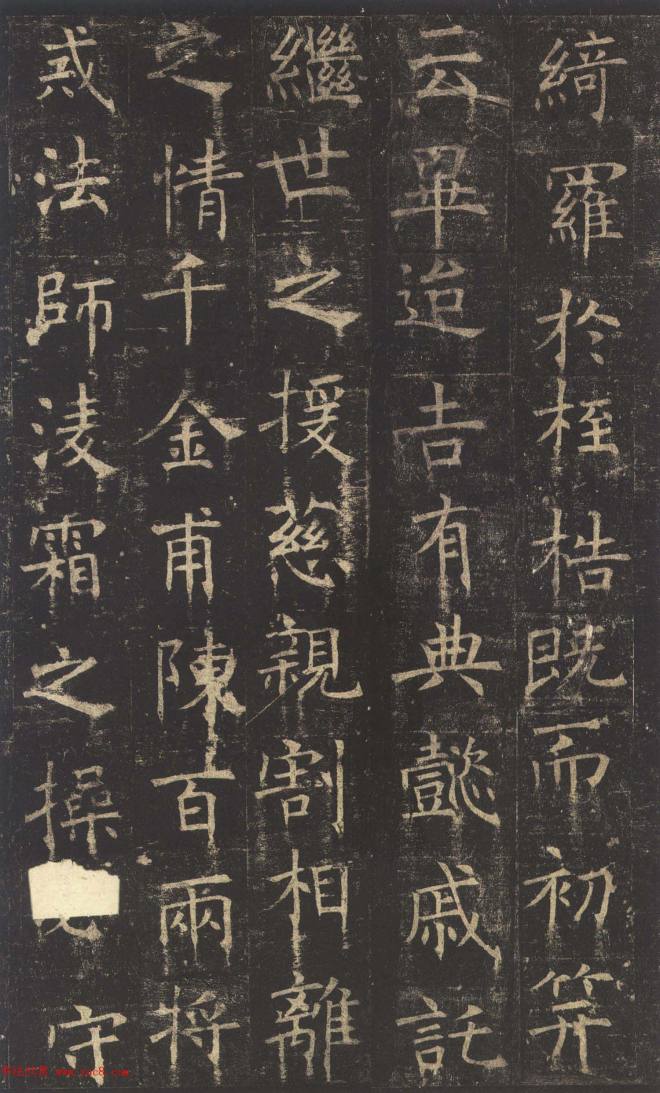 綺羅於桎梏既而初笄
云畢迨吉有典懿戚託
繼世之援慈親割相離
之情千金甫陳百兩將
戒法師淩霜之操守
www.yac8.com